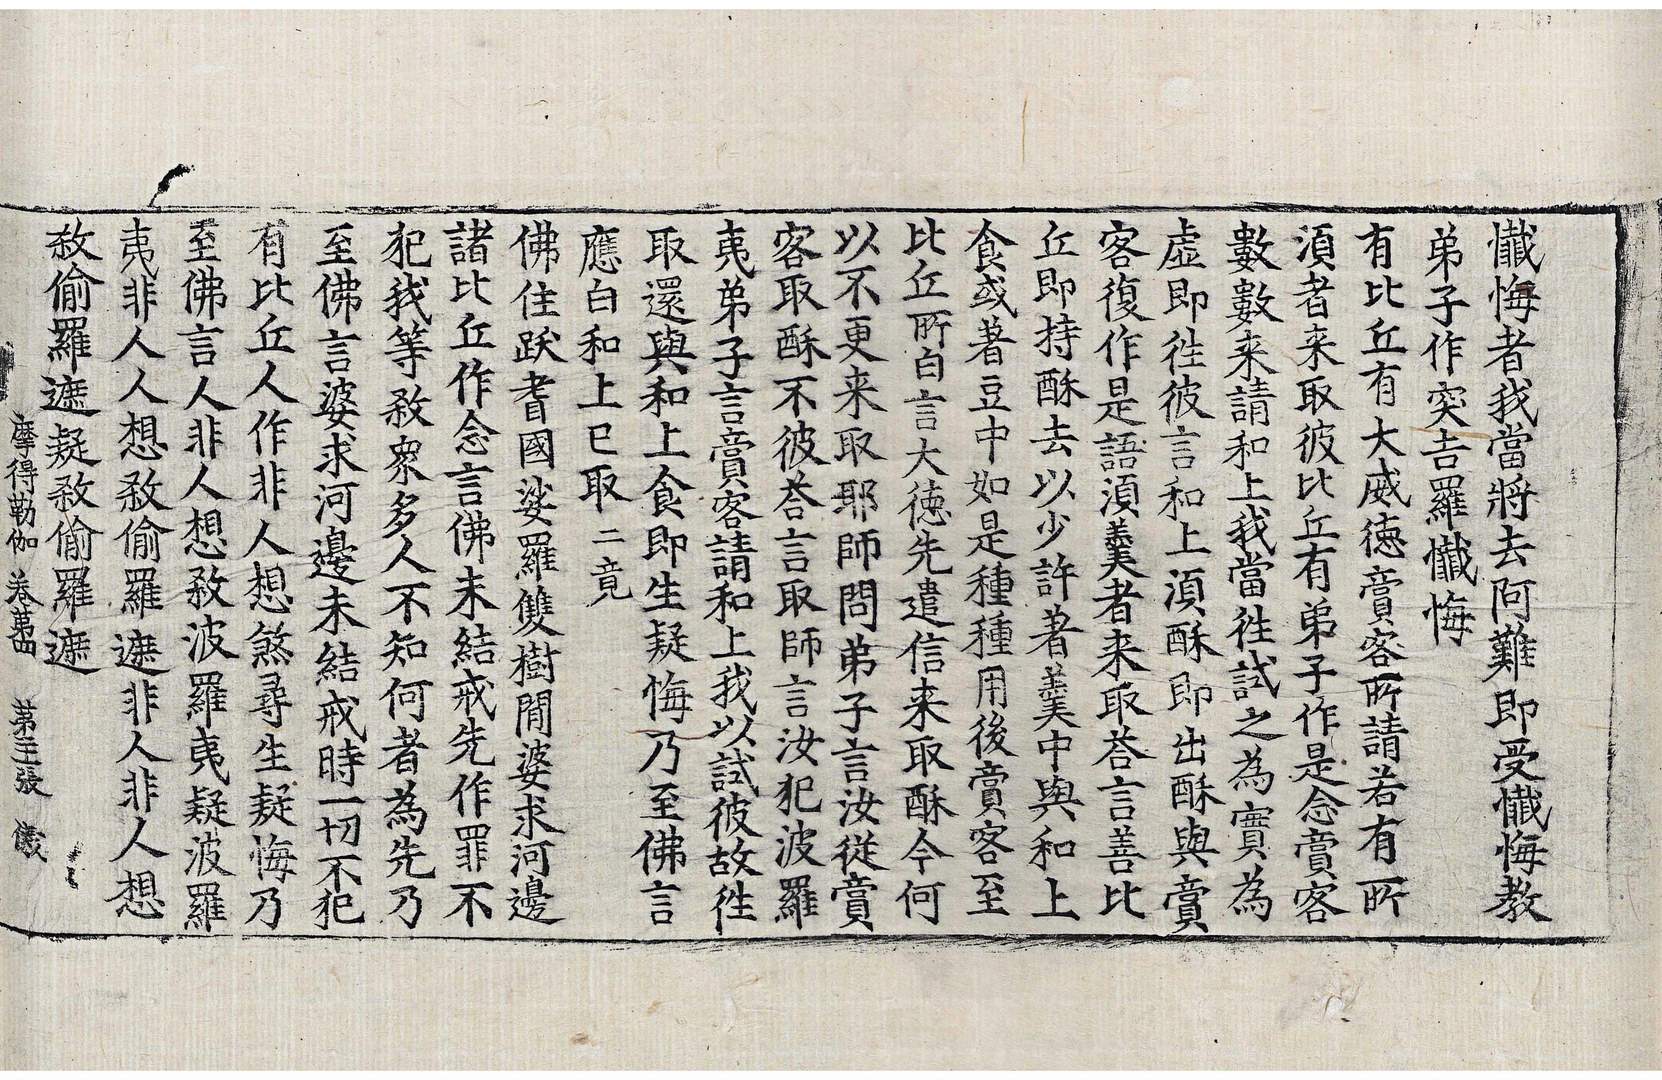 懺悔者我當將去阿難即受懺悔教
弟子作突吉羅懺悔
有比丘有大威德賣客所請若有所
須者来取彼比丘有弟子作是念賣客
數數来請和上我當徃試之為實為
虛即徃彼言和上須酥即出酥與賣
客復作是語須羹者来取荅言善比
丘即持酥去以少許著羹中與和上
食或著豆中如是種種用後賣客至
比丘所白言大德先遣信来取酥今何
以不更来取耶師問弟子言汝從賣
客取酥不彼荅言取師言汝犯波羅
夷弟子言賣客請和上我以試彼故徃
取還與和上食即生疑悔乃至佛言
應白和上已取 二竟
佛住跋耆國娑羅雙樹間婆求河邊
諸比丘作念言佛未結戒先作罪不
犯我等敎衆多人不知何者為先乃
至佛言婆求河邊未結戒時一切不犯
有比丘人作非人想煞尋生疑悔乃
至佛言人非人想敎波羅夷疑波羅
夷非人人想敎偷羅遮非人非人想
敎偷羅遮疑敎偷羅遮
摩得勒伽 卷第四 第 張